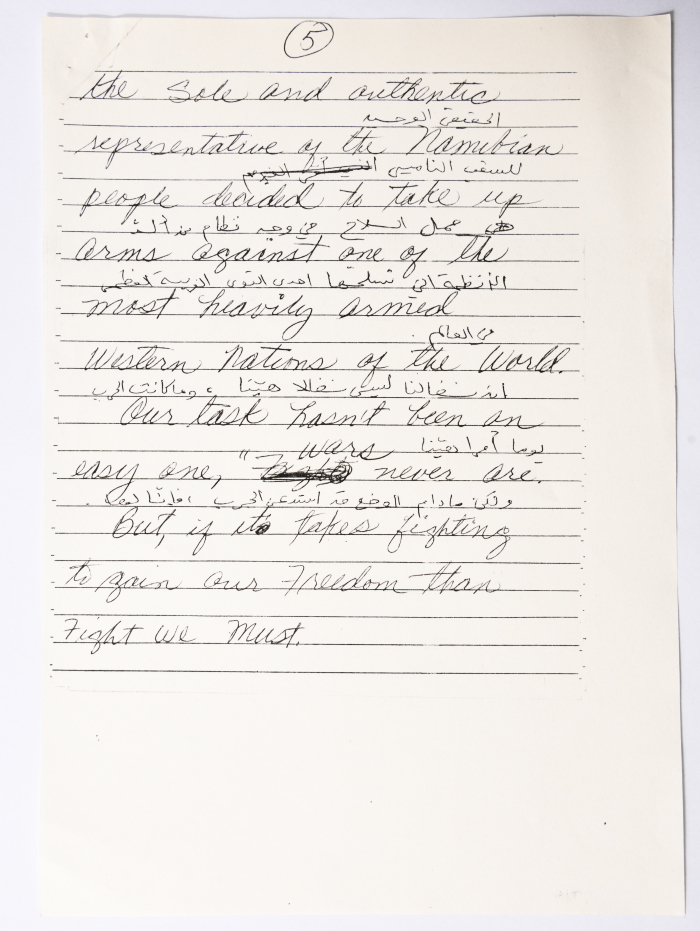 5
the Sole and authentic
الحقيقي الوحيد
representative of the Namibian
للشعب الناميبي
people decided to take up
حمل السلاح في وجه نظام من
arms against one of the
الأنظمة التي تسلحها احدى القوى الغربية العظمى
most heavily armed
في العالم.
Western Nations of the World.
نضالنا ليس نضالا هيّنا، وما كانت الحرب
Our task hasn't been an
يوما أمرا هيّنا
wars
easy one, never are.
ولكن مادام الوضع قد استدعى الحرب،
But, if it takes fighting
to gain our Freedom than
Fight we Must.